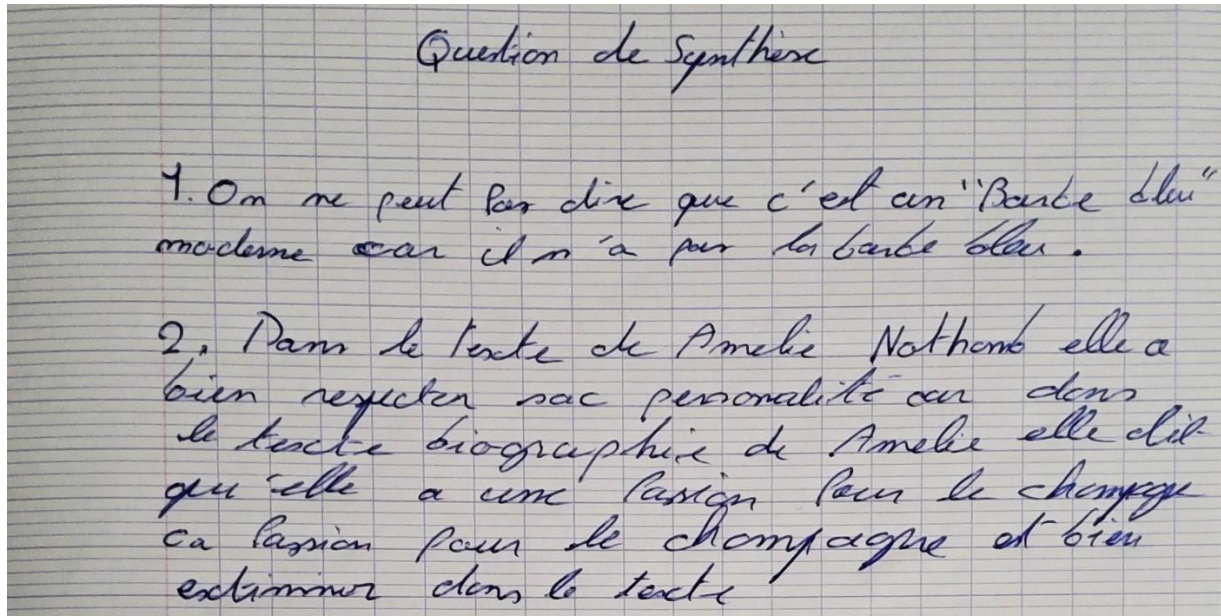 Question de Synthèse
1. On ne peut Pas dire que c'est un "Barbe bleu"
moderne car il n'a pas la barbe bleu.
2. Dans le texte de Amelie Nothomb elle a
bien respecter sac personalité car dans
le texte biographie de Amelie elle dit
qu'elle a une Passion Pour le champagne
ca Passion pour le champagne et bien
extimmer dans le texte